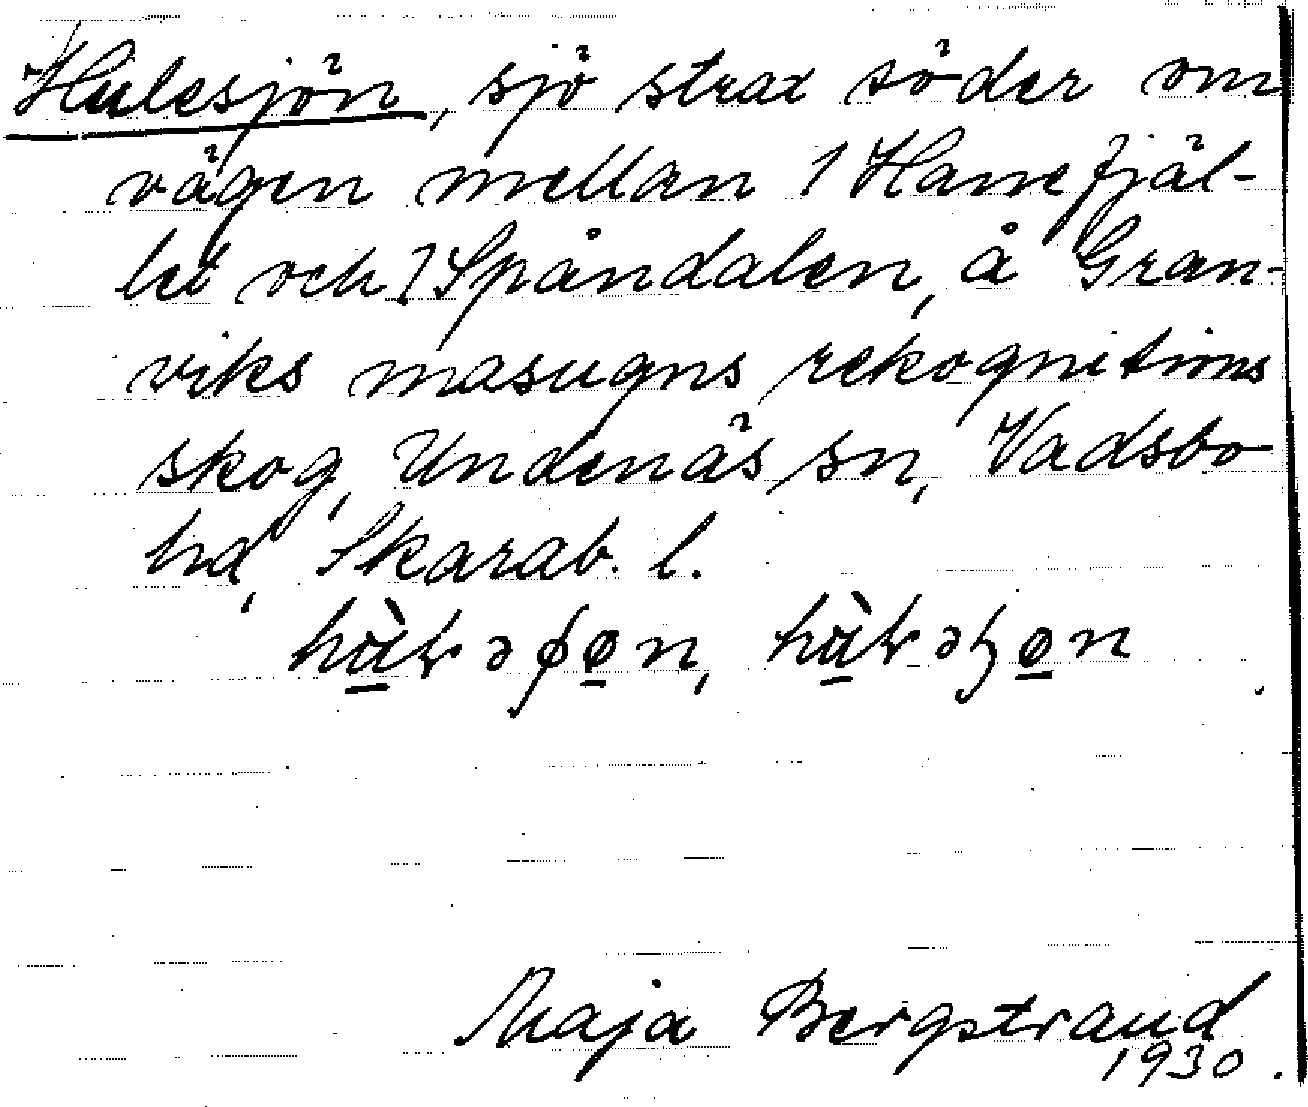 Hulesjön, sjö strax söder om
vägen mellan 1 Hanefjäl-
let och 2 Spåndalen, å Gran-
viks masugns rekognitions
skog, Undenäs sn, Vadsbo
hd, Skarab. l.
Maja Bergstrand
1930.